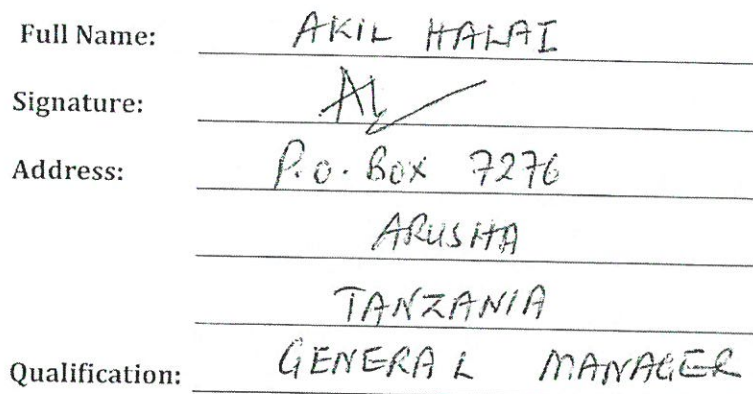 Full Name: AKIL HALAI
Signature:
Address: P.O. Box 7276
ARUSHA
TANZANIA
Qualification: GENERAL MANAGER